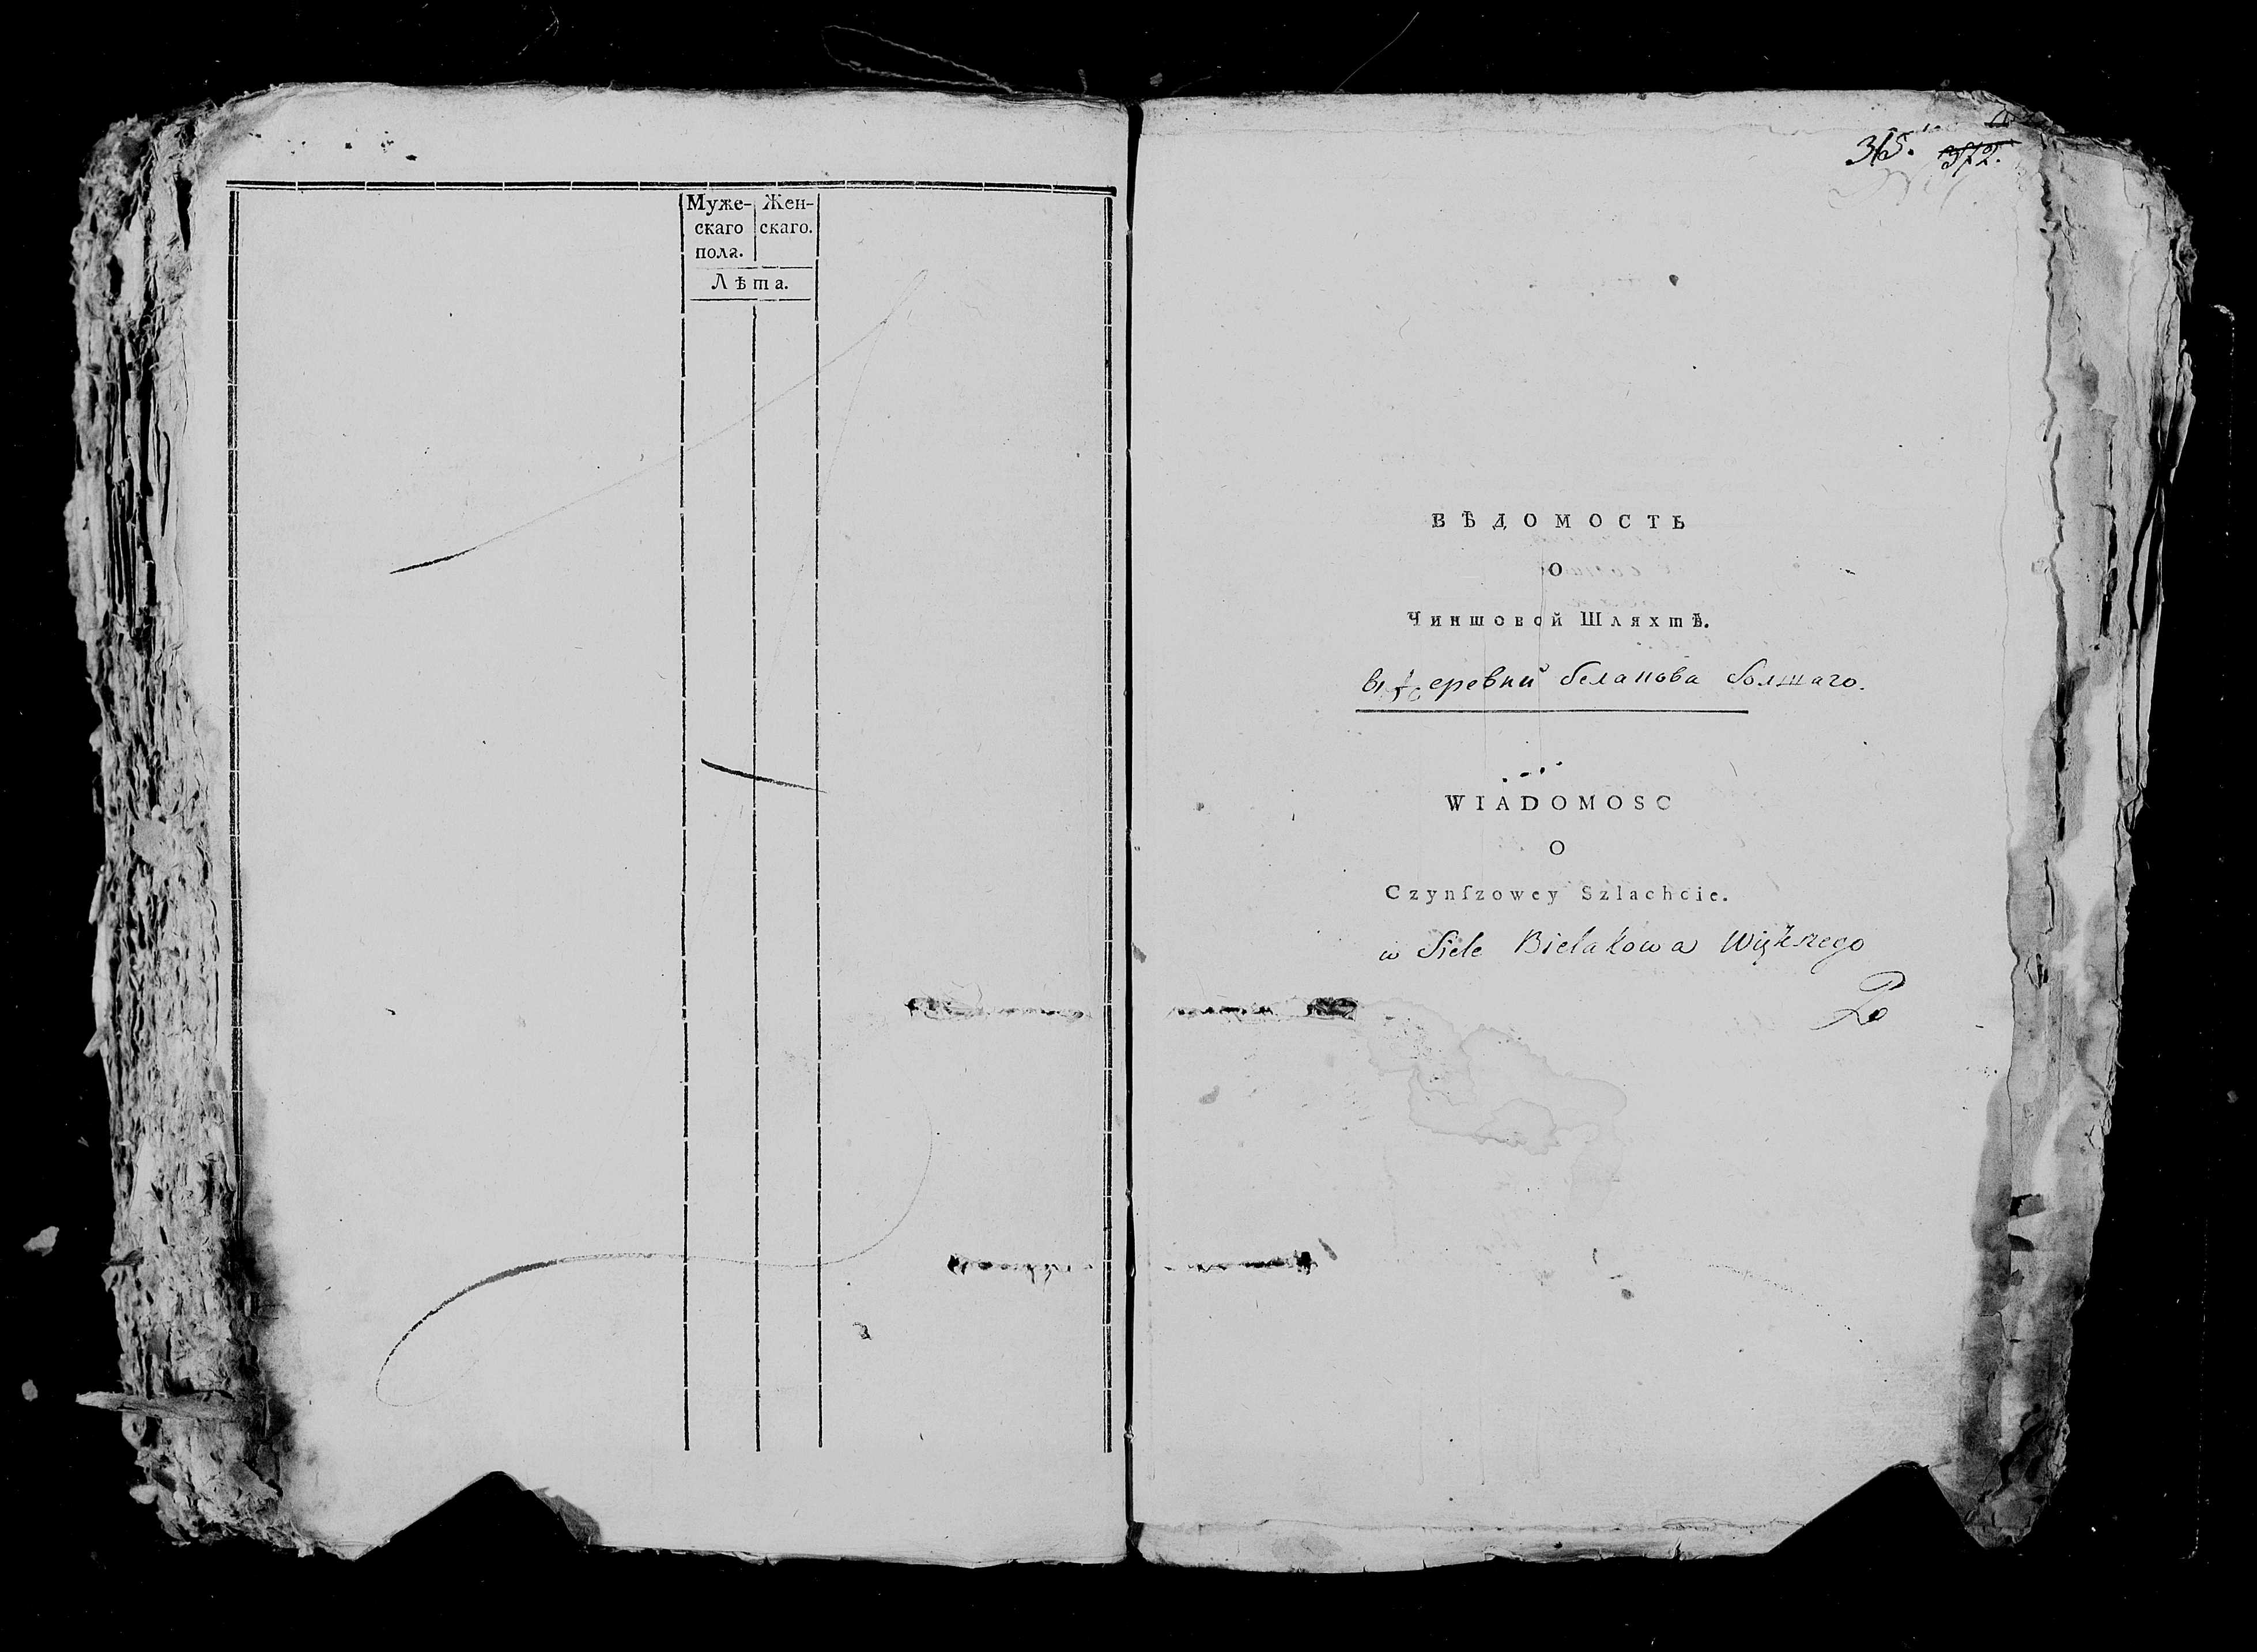 Муже- Жен-
скаго скаго.
пола.
Лѣта.
365. 372.
ВѢДОМОСТЬ
О
Чиншовой Шляхтѣ.
въ деревни белакова болшаго.
WIADOMOSC
O
Czynſzowey Szlachcie.
w Siele Bielakowa Większego